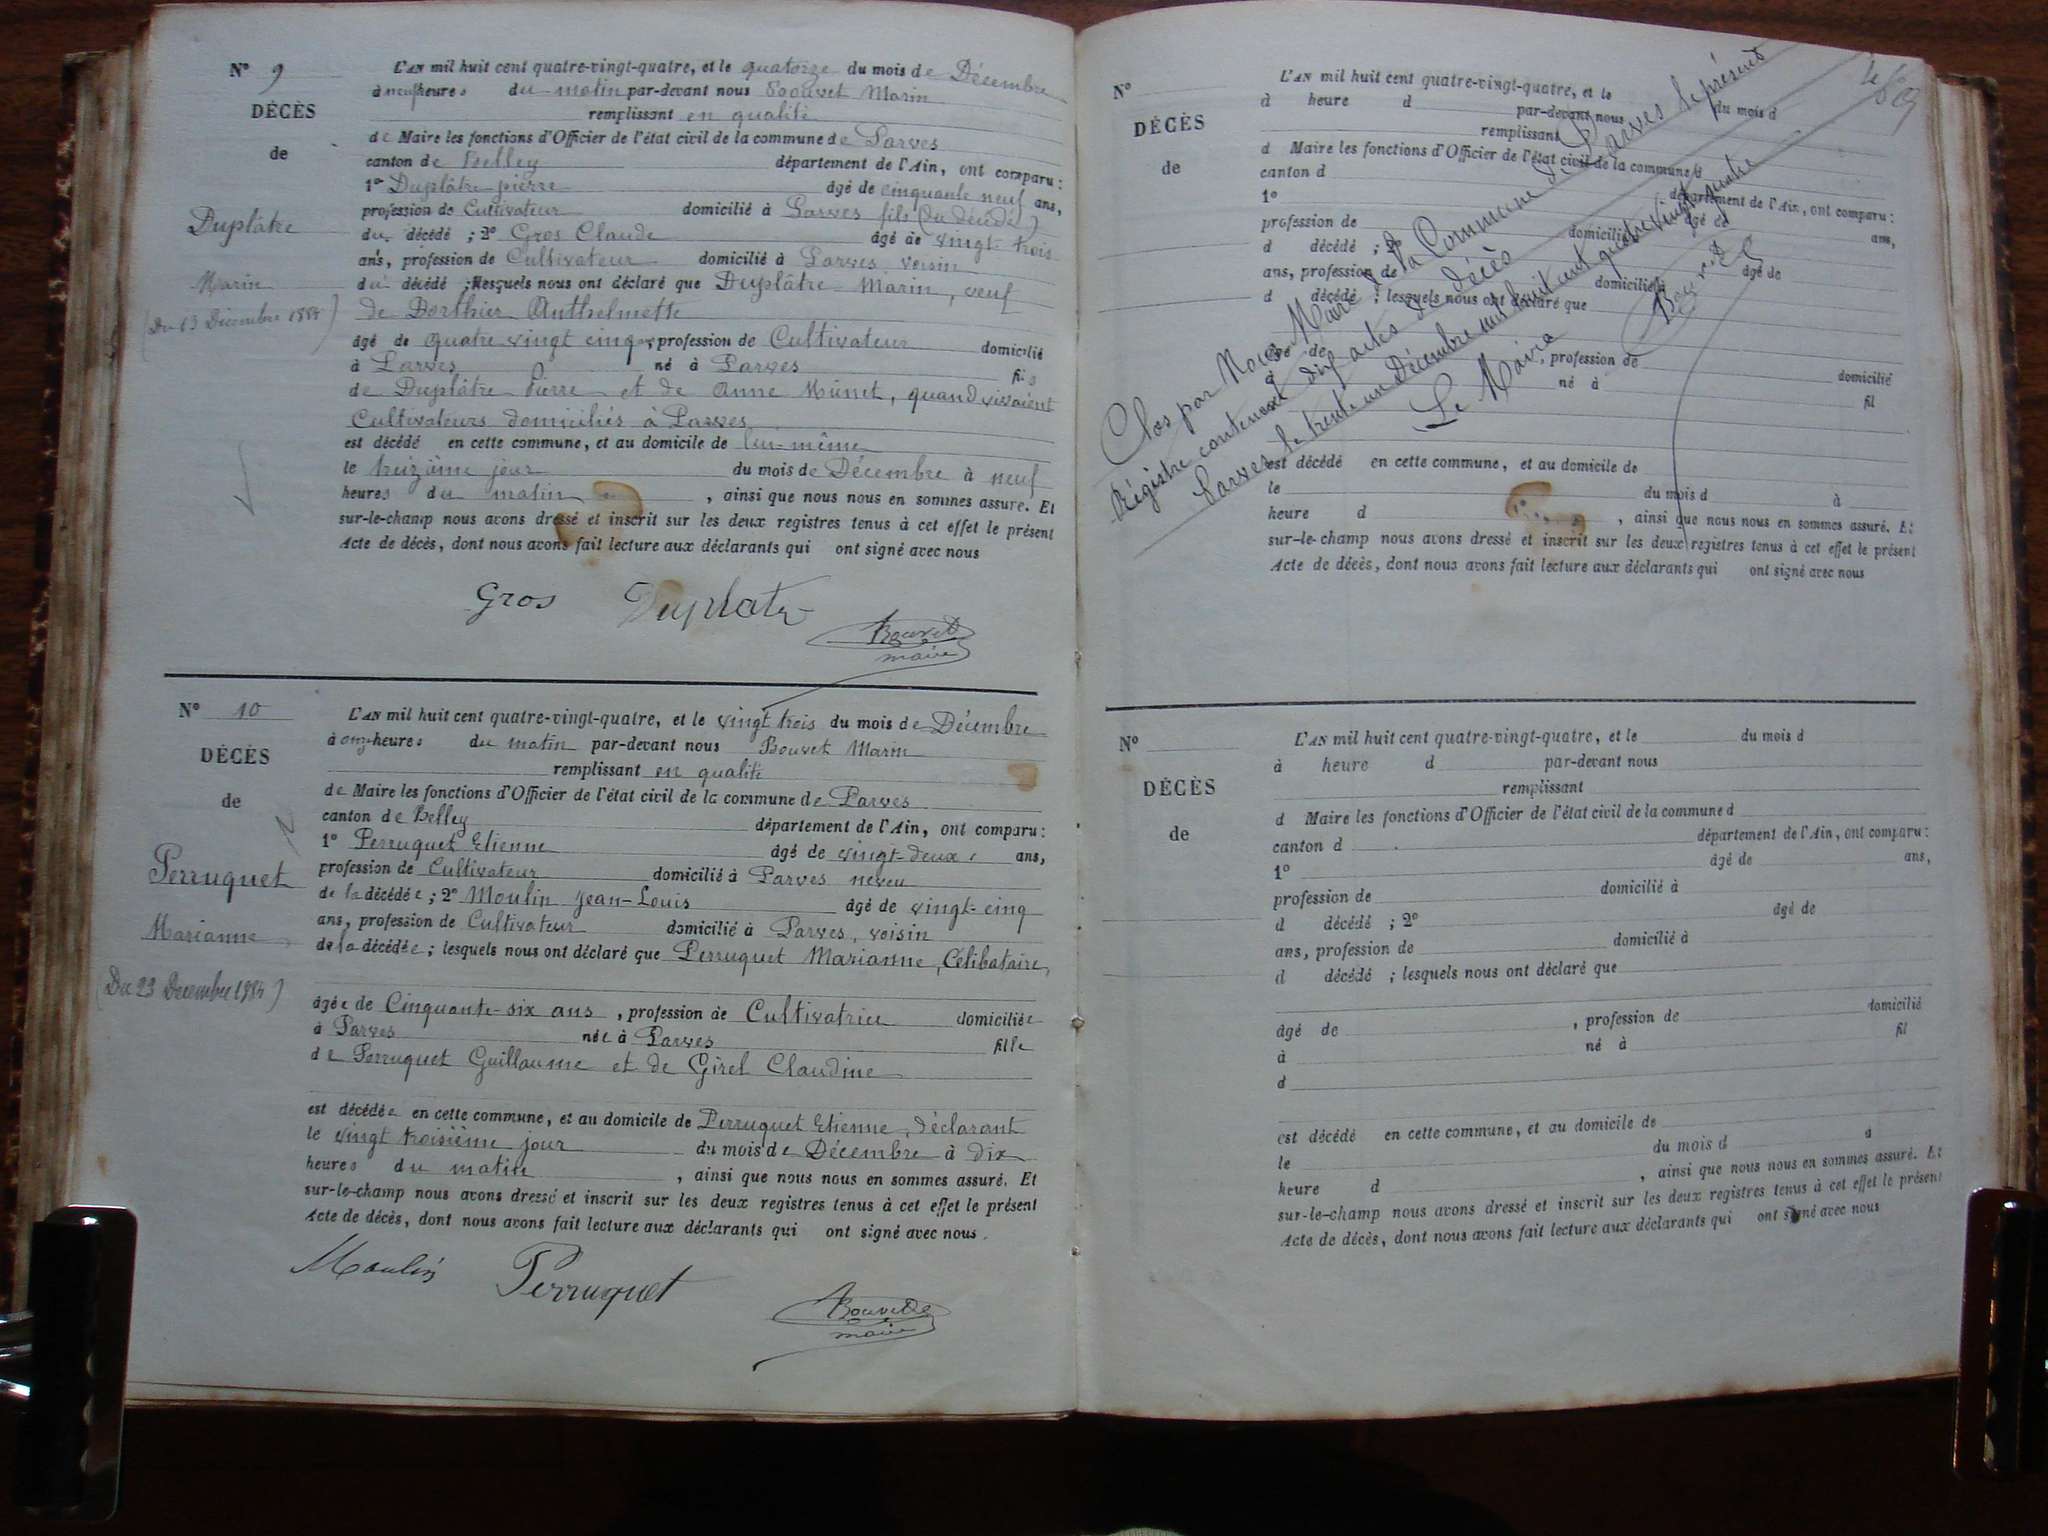 N° 9
DÉCÈS
de
Duplâtre
Marin
(Du 13 Décembre 1884)
L'AN mil huit cent quatre-vingt-quatre, et le quatorze du mois de Décembre
à neuf heures du matin par-devant nous Bouvet Marin
remplissant en qualité
de Maire les fonctions d'Officier de l'état civil de la commune de Parves
canton de Belley département de l'Ain, ont comparu :
1° Duplâtre pierre âgé de cinquante neuf ans,
profession de Cultivateur domicilié à Parves fils (du décédé)
du décédé ; 2° Gros Claude âgé de vingt-trois
ans, profession de Cultivateur domicilié à Parves, voisin
du décédé ; lesquels nous ont déclaré que Duplâtre Marin, veuf
de Borthier Anthelmette
âgé de quatre vingt cinq, profession de Cultivateur domicilié
à Parves né à Parves fils
de Duplâtre Pierre et de Anne Munet, quand vivaient
Cultivateurs domiciliés à Parves
est décédé en cette commune, et au domicile de lui-même
le treizième jour du mois de Décembre à neuf
heures du matin, ainsi que nous nous en sommes assuré. Et
sur-le-champ nous avons dressé et inscrit sur les deux registres tenus à cet effet le présent
Acte de décès, dont nous avons fait lecture aux déclarants qui ont signé avec nous
Gros Duplatre
Bouvet
maire
N° 10
DÉCÈS
de
Perruquet
Marianne
(Du 23 Decembre 1884)
L'AN mil huit cent quatre-vingt-quatre, et le vingt trois du mois de Décembre
à onze heures du matin par-devant nous Bouvet Marin
remplissant en qualité
de Maire les fonctions d'Officier de l'état civil de la commune de Parves
canton de Belley département de l'Ain, ont comparu :
1° Perruquet Etienne âgé de vingt-deux ans,
profession de Cultivateur domicilié à Parves neveu
de la décédée ; 2° Moulin Jean-Louis âgé de vingt-cinq
ans, profession de Cultivateur domicilié à Parves, voisin
de la décédée ; lesquels nous ont déclaré que Perruquet Marianne, Célibataire,
âgée de Cinquante-six ans, profession de Cultivatrice domiciliée
à Parves née à Parves fille
de Perruquet Guillaume et de Girel Claudine
est décédée en cette commune, et au domicile de Perruquet Etienne, déclarant
le vingt troisième jour du mois de Décembre à dix
heures du matin, ainsi que nous nous en sommes assuré. Et
sur-le-champ nous avons dressé et inscrit sur les deux registres tenus à cet effet le présent
Acte de décès, dont nous avons fait lecture aux déclarants qui ont signé avec nous.
Moulin Perruquet
Bouvet
maire
N°
DÉCÈS
de
L'AN mil huit cent quatre-vingt-quatre, et le du mois d
à heure d par-devant nous
remplissant
d Maire les fonctions d'Officier de l'état civil de la commune d
canton d département de l'Ain, ont comparu :
1° âgé de ans,
profession de domicilié à
d décédé ; 2° âgé de
ans, profession de domicilié à
d décédé ; lesquels nous ont déclaré que
âgé de , profession de domicilié
à né à fil
est décédé en cette commune, et au domicile de
le du mois d à
heure d , ainsi que nous nous en sommes assuré. Et
sur-le-champ nous avons dressé et inscrit sur les deux registres tenus à cet effet le présent
Acte de décès, dont nous avons fait lecture aux déclarants qui ont signé avec nous
Clos par Nous Maire de la Commune de Parves le présent
Régistre contenant dix actes de décès
Parves le trente un Décembre mil huit cent quatre vingt quatre
Le Maire
Bouvet
N°
DÉCÈS
de
L'AN mil huit cent quatre-vingt-quatre, et le du mois d
à heure d par-devant nous
remplissant
d Maire les fonctions d'Officier de l'état civil de la commune d
canton d département de l'Ain, ont comparu :
1° âgé de ans,
profession de domicilié à
d décédé ; 2° âgé de
ans, profession de domicilié à
d décédé ; lesquels nous ont déclaré que
âgé de , profession de domicilié
à né à fil
d
est décédé en cette commune, et au domicile de
le du mois d à
heure d , ainsi que nous nous en sommes assuré. Et
sur-le-champ nous avons dressé et inscrit sur les deux registres tenus à cet effet le présent
Acte de décès, dont nous avons fait lecture aux déclarants qui ont signé avec nous